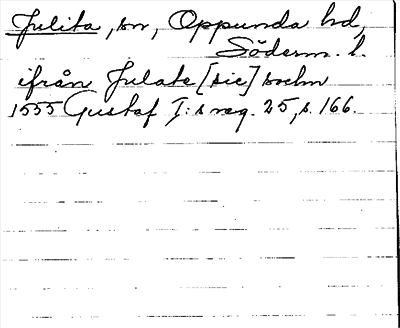 Julita, sn, Oppunda hd,
Söderm. l.
ifrån Julate [sic] sochn
1555 Gustaf I:s reg. 25, s. 166.